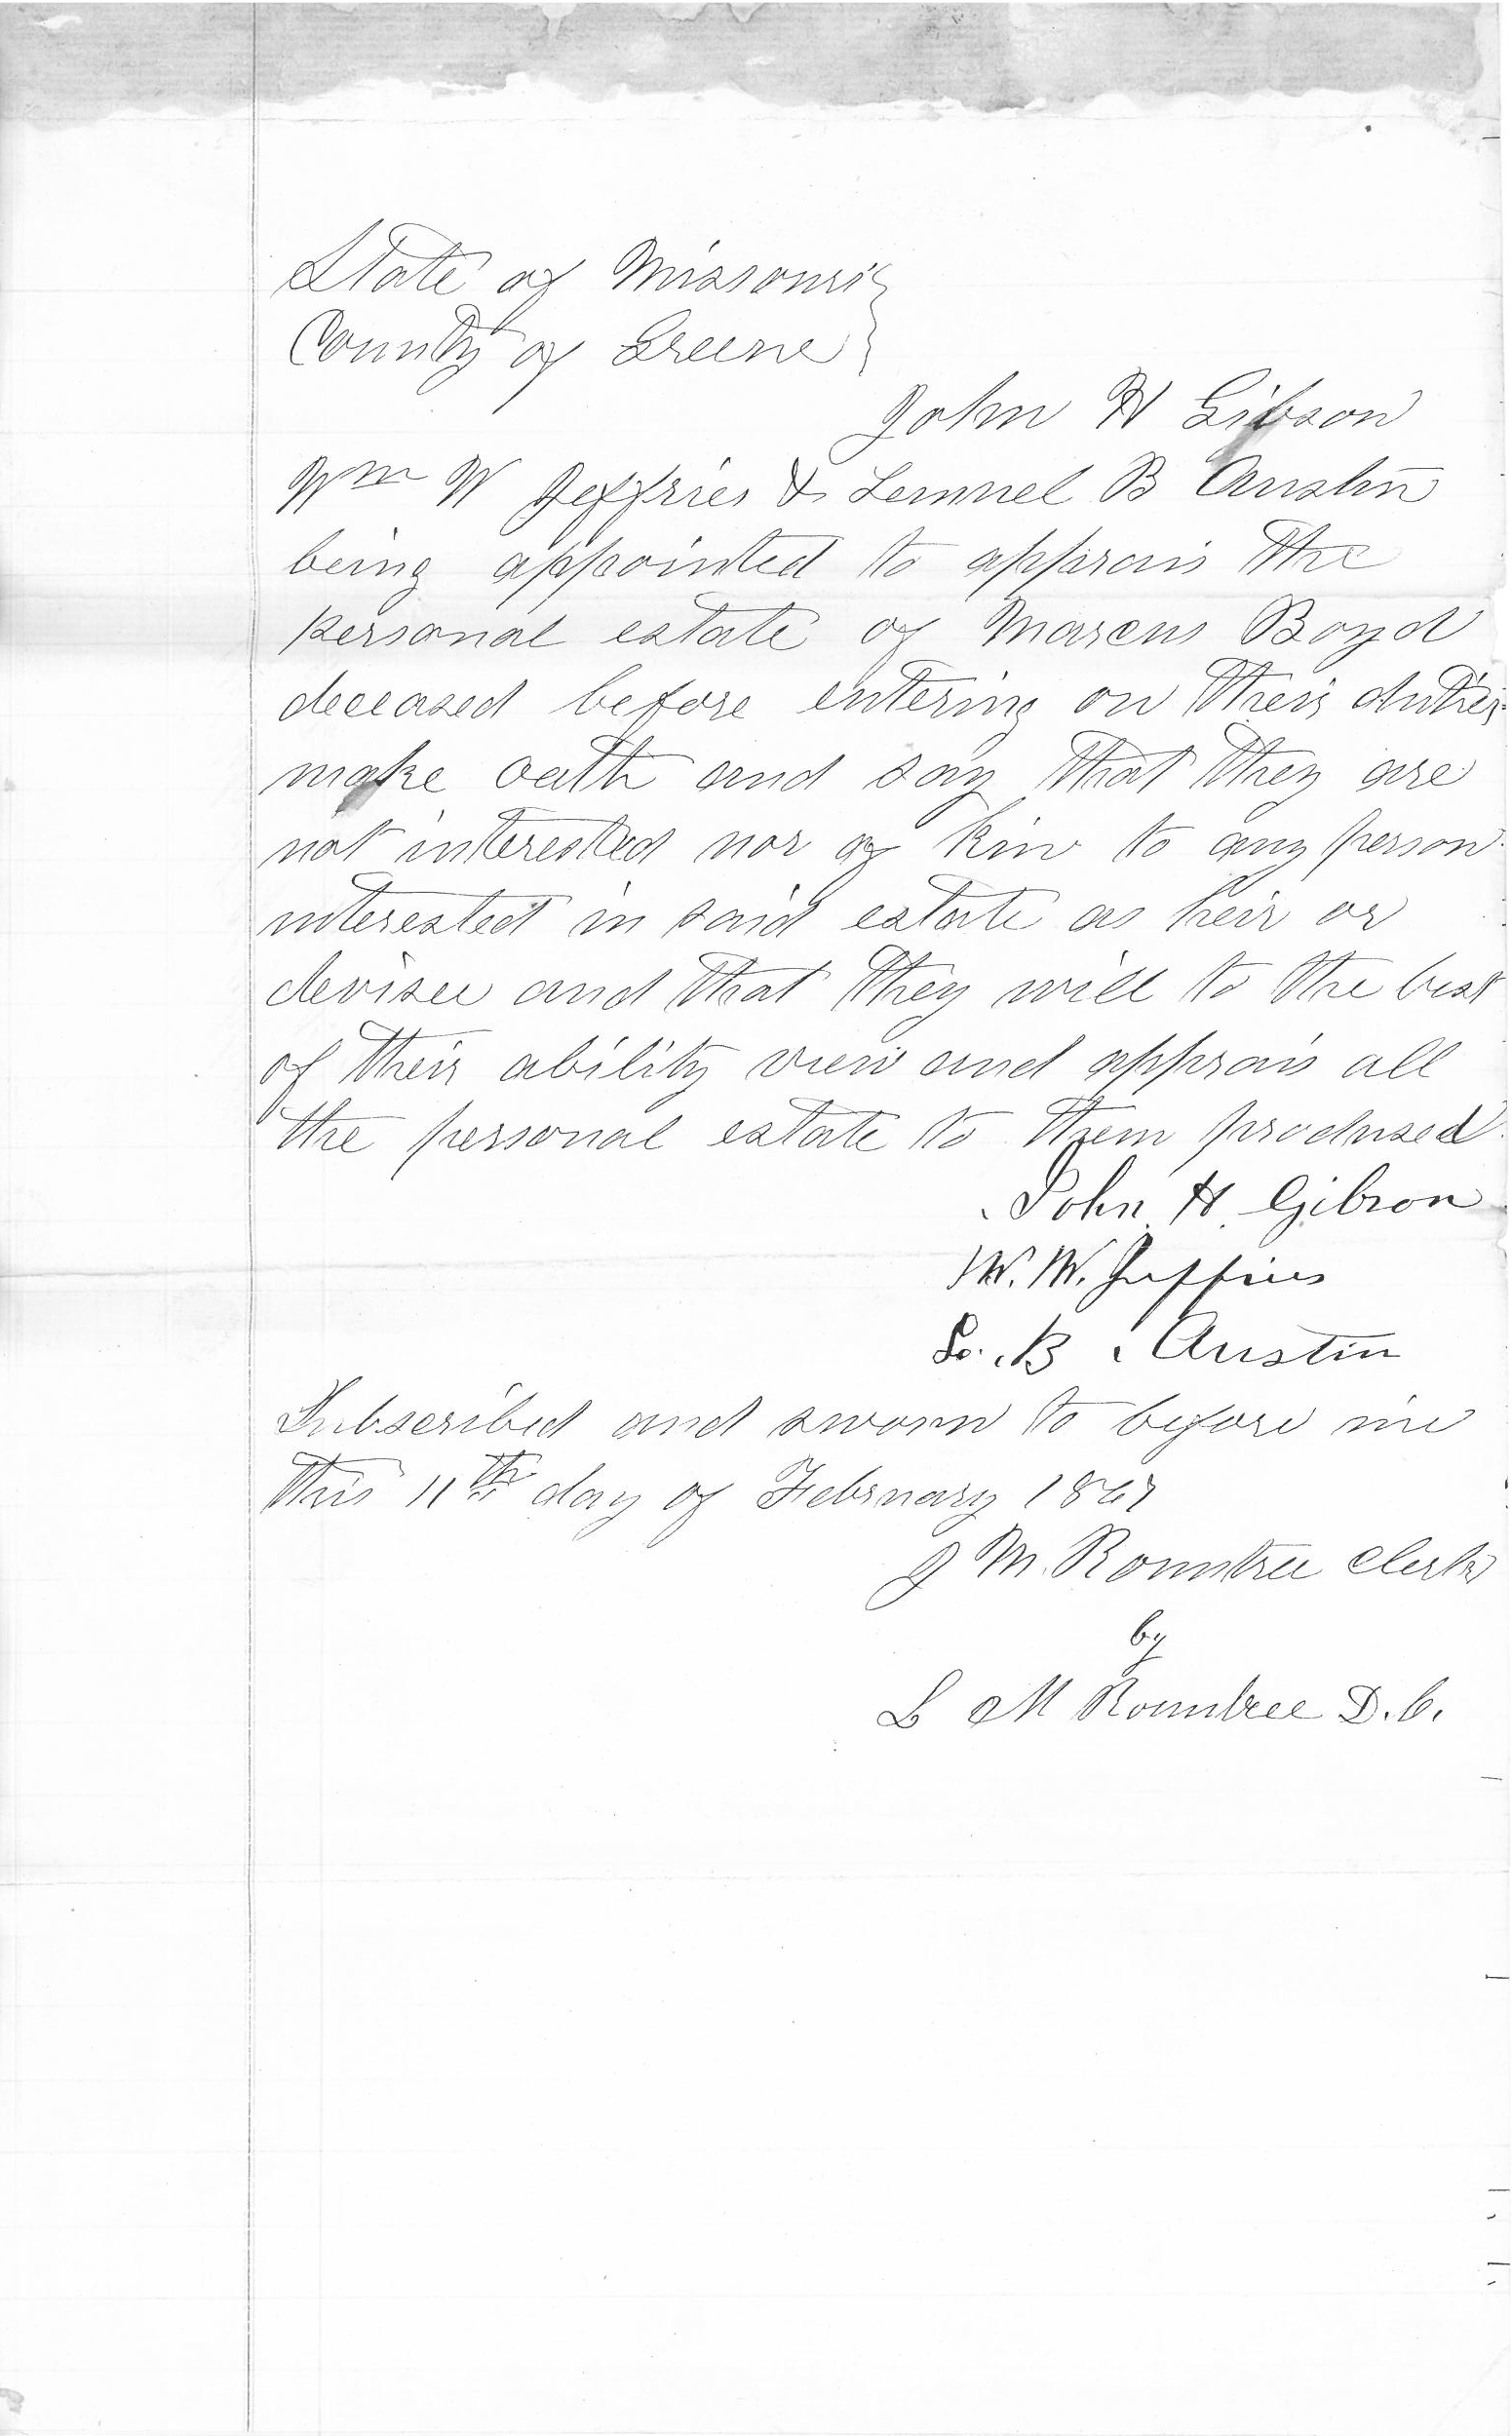 State of Missouri }
County of Greene }
John H Gibson
Wm W Jeffries & Lemuel B Austin
being appointed to apprais the
personal estate of Marcus Boyd
deceased before entering on their duties
make oath and say that they are
not interested nor of kin to any person
interested in said estate as heir or
devisee and that they will to the best
of their ability view and apprais all
the personal estate to them prodused
John H Gibson
W. W. Jeffries
L. B. Austin
Subscribed and sworn to before me
this 11th day of February 1867
J M. Rountree Clerk
by
L M Rountree D.C.